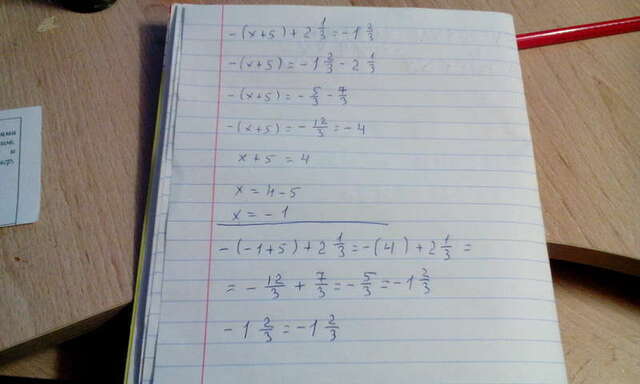 -(x+5)+2 1/3=-1 2/3
-(x+5)=-1 2/3-2 1/3
-(x+5)=-5/3-7/3
-(x+5)=-12/3=-4
x+5=4
x=4-5
x=-1
-(-1+5)+2 1/3=-(4)+2 1/3=
=-12/3+7/3=-5/3=-1 2/3
-1 2/3=-1 2/3